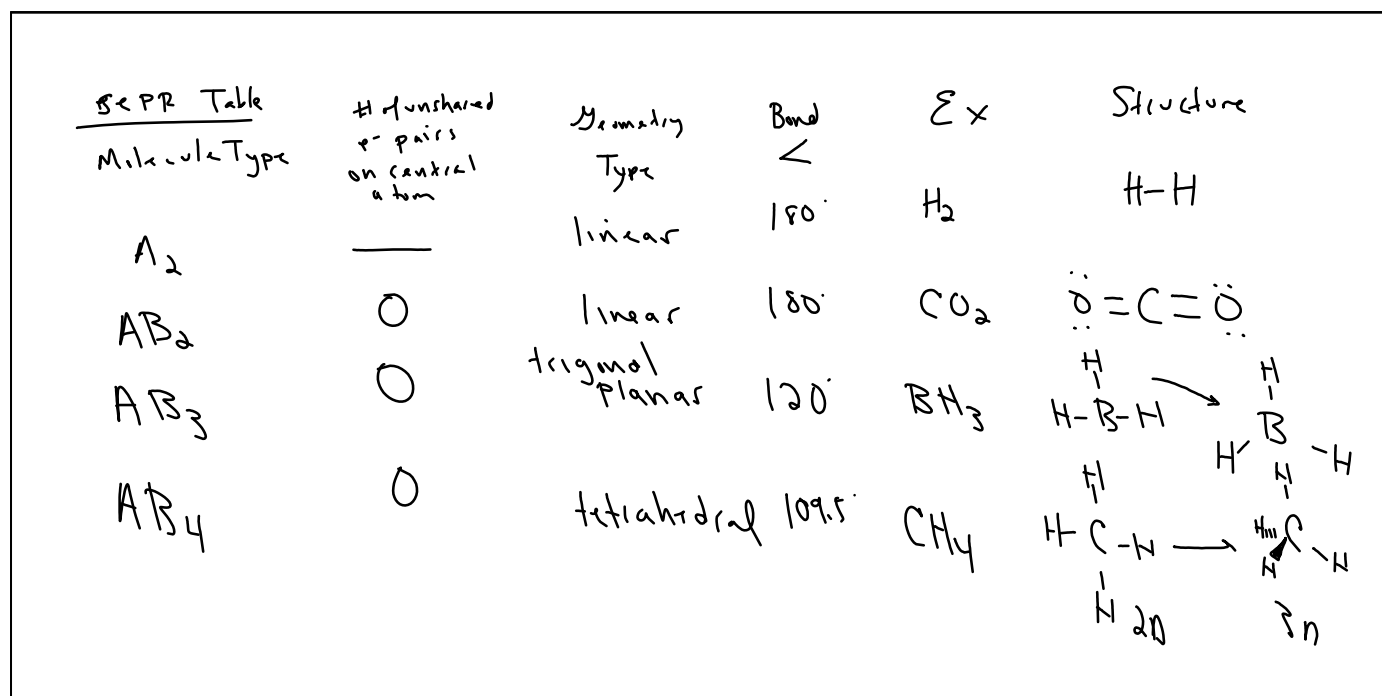 VSEPR Table
Molecule Type
# of unshared
e- pairs
on central
atom
Geometry
Type
Bond
<
Ex
Structure
A2
—
linear
180°
H2
H-H
AB2
0
linear
180°
CO2
O=C=O
AB3
0
trigonal
planar
120°
BH3
H
H-B-H
H
B
H H
AB4
0
tetrahedral
109.5°
CH4
H
H-C-H
H
2D
H
H C
H H
3D